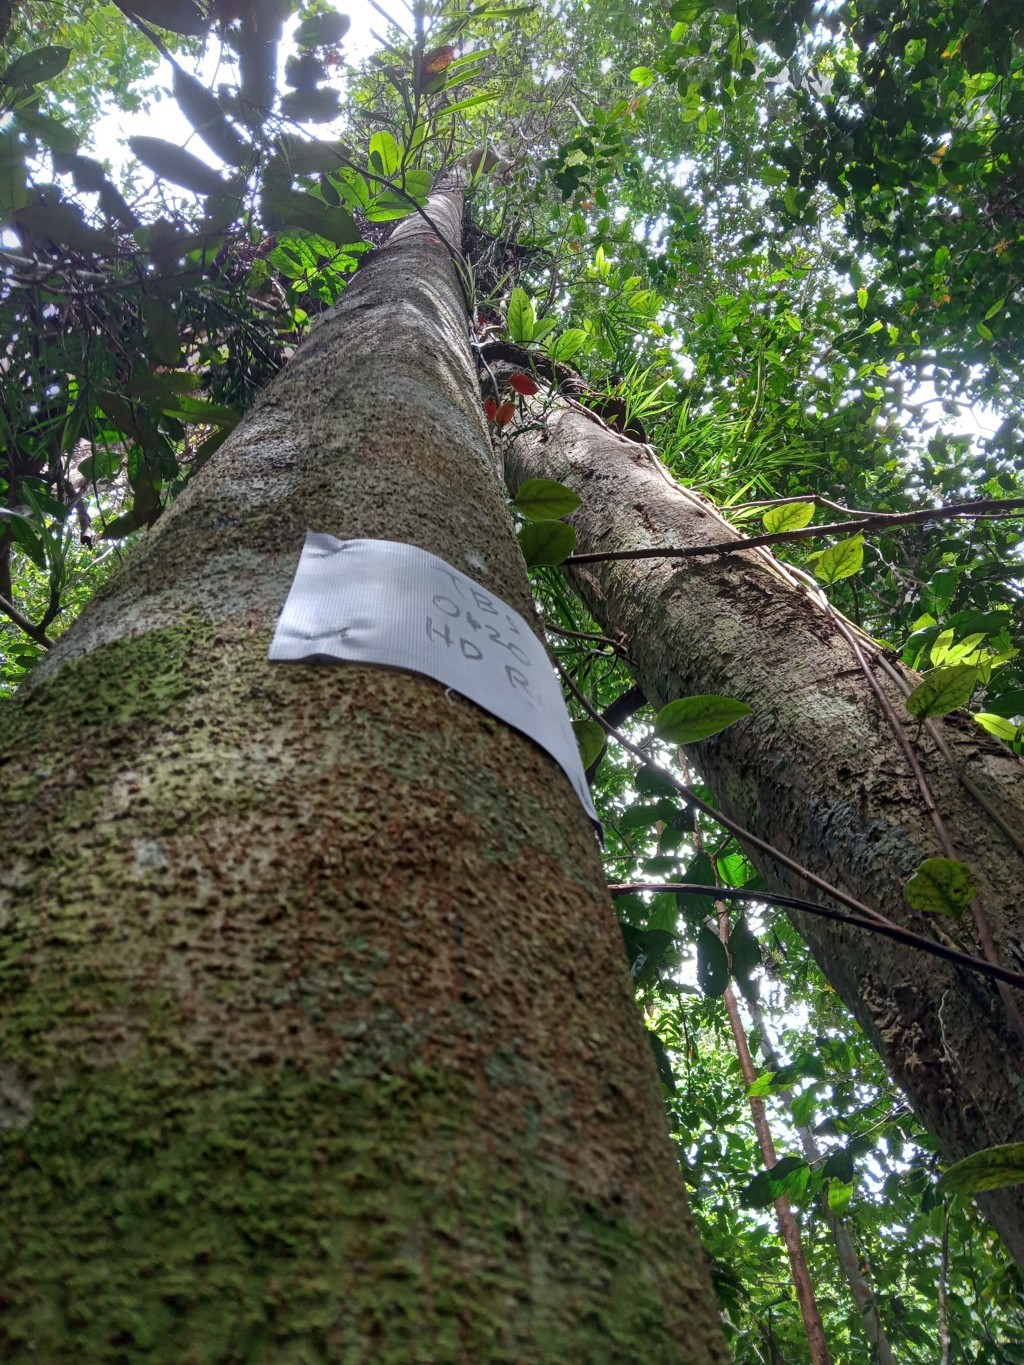 TBS
0420
HD R